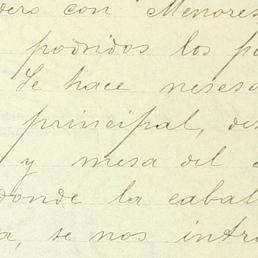 dero con Menores
podridos los p
Se hace neses
principal, des
y mesa del
donde la cabal
a, se nos intr